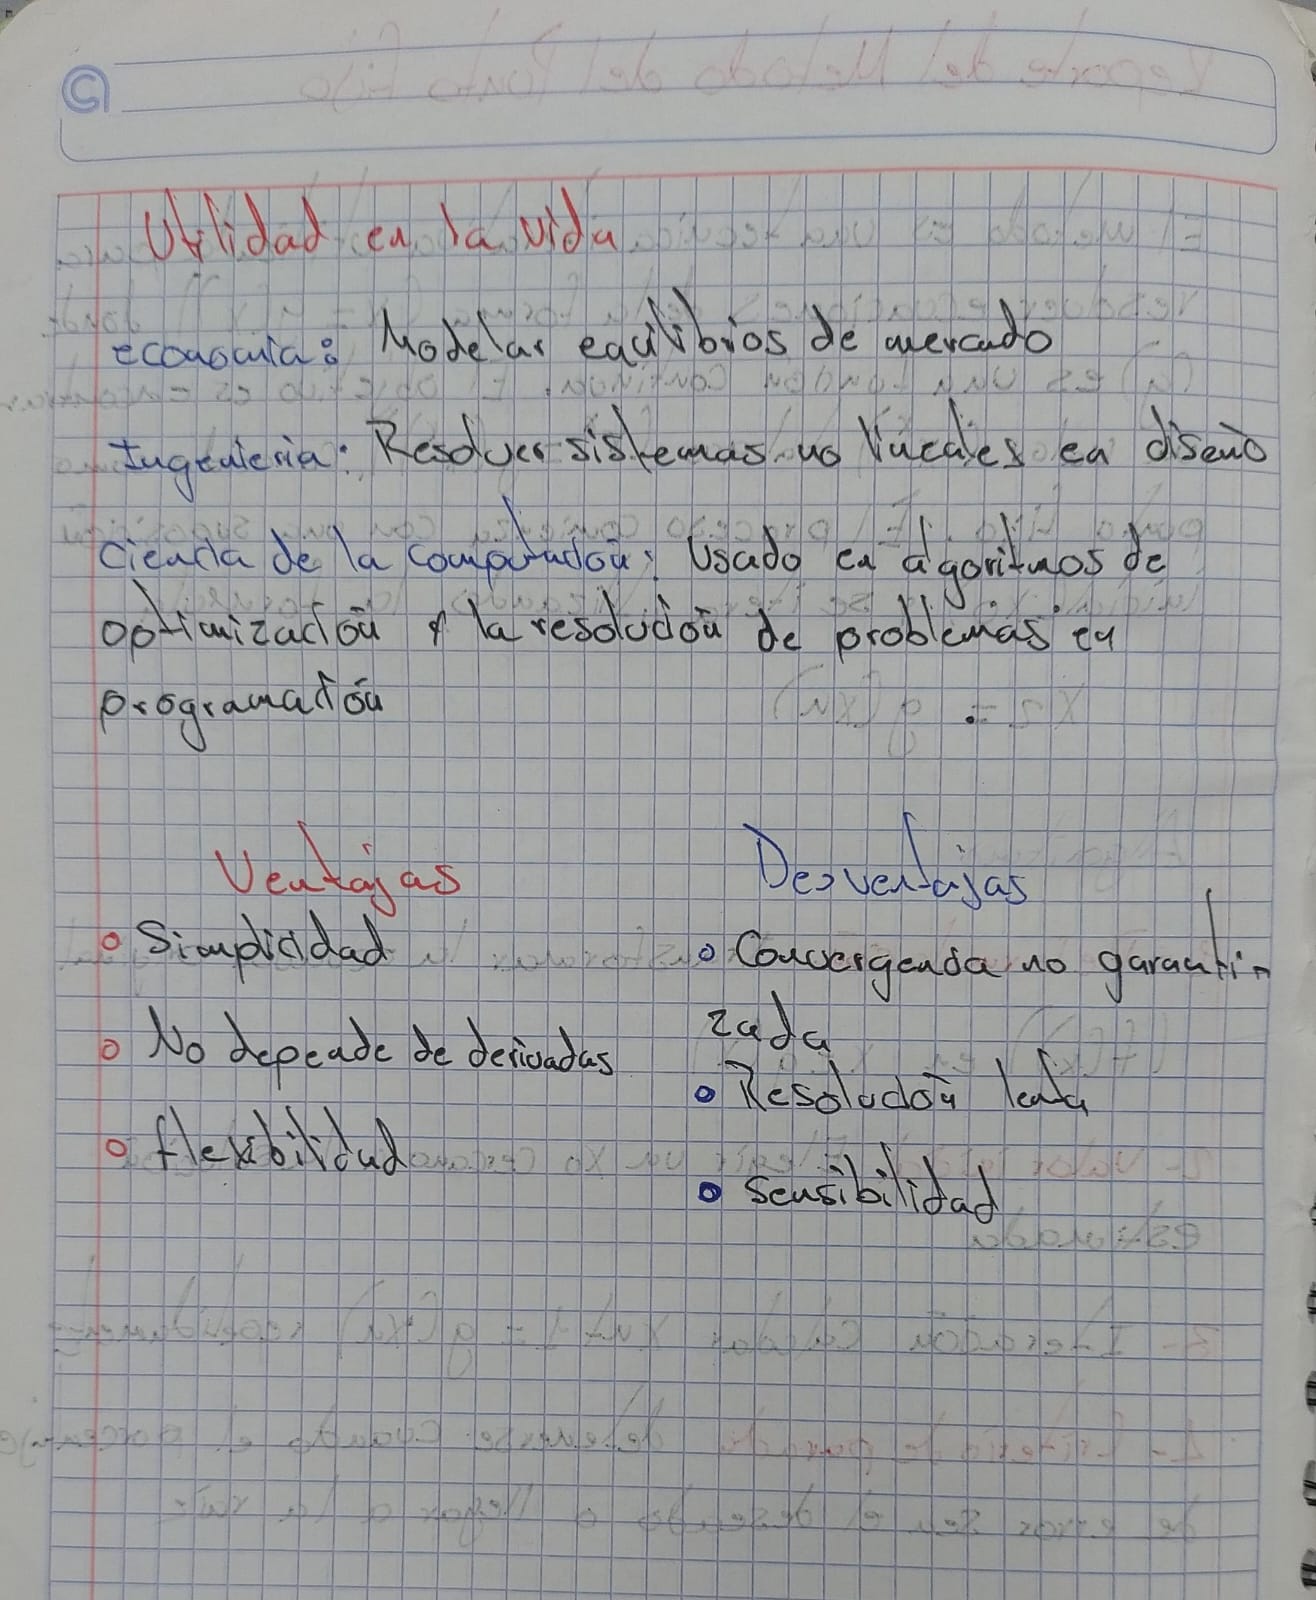 Utilidad en la vida
economía: Modelar equilibrios de mercado
Ingeniería: Resolver sistemas no lineales en diseño
Ciencia de la computación: Usado en algoritmos de
optimización y la resolución de problemas en
programación
Ventajas
Simplicidad
No depende de derivadas
flexibilidad
Desventajas
Convergencia no garanti-
zada
Resolución lenta
Sensibilidad